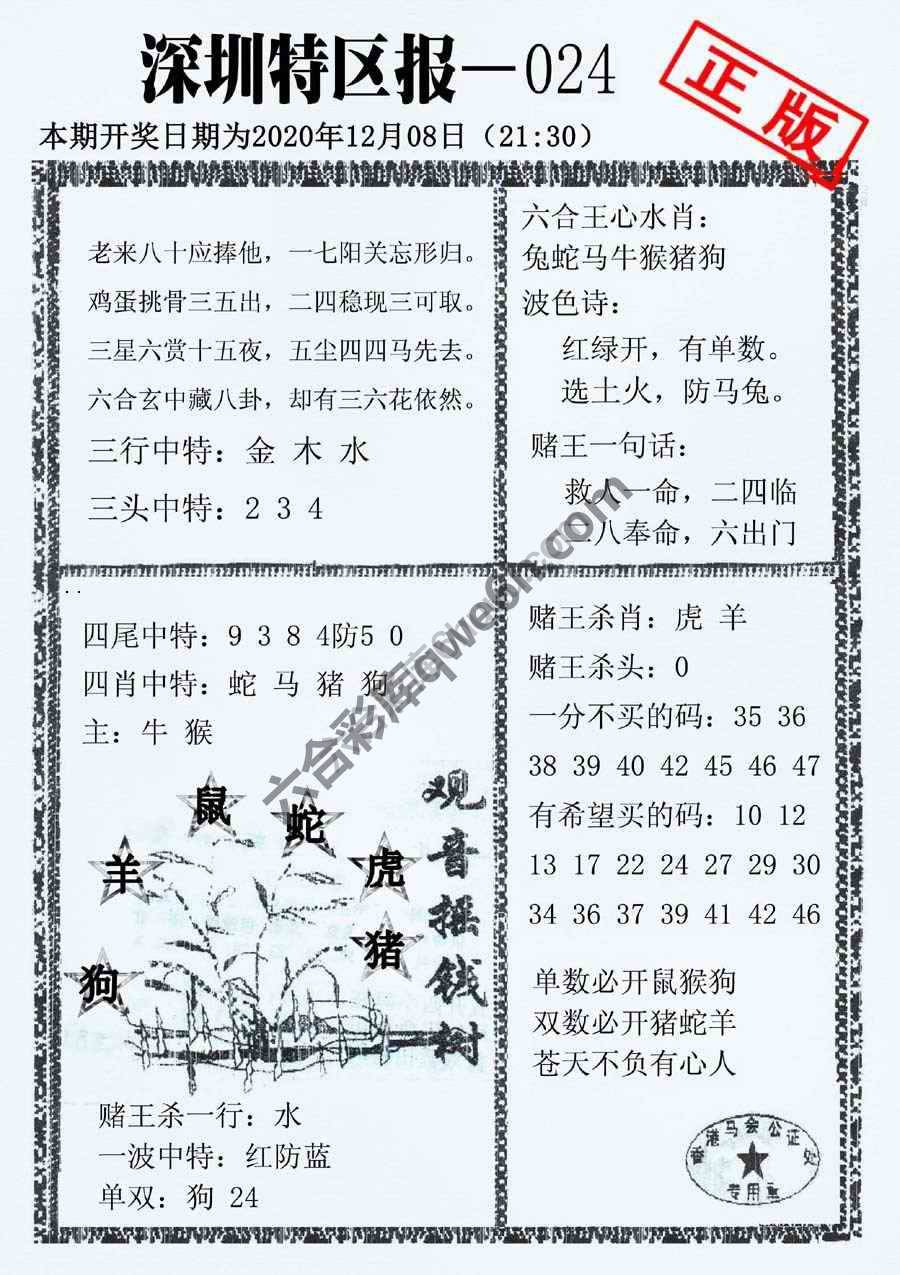 深圳特区报—024
正版
本期开奖日期为2020年12月08日（21:30）
老来八十应捧他，一七阳关忘形归。
鸡蛋挑骨三五出，二四稳现三可取。
三星六赏十五夜，五尘四四马先去。
六合玄中藏八卦，却有三六花依然。
三行中特：金 木 水
三头中特：2 3 4
六合王心水肖：
兔蛇马牛猴猪狗
波色诗：
红绿开，有单数。
选土火，防马兔。
赌王一句话：
救人一命，二四临
二八奉命，六出门
四尾中特：9 3 8 4防5 0
四肖中特：蛇 马 猪 狗
主：牛 猴
鼠
蛇
羊
虎
猪
狗
观音摇钱树
赌王杀一行：水
一波中特：红防蓝
单双：狗 24
赌王杀肖：虎 羊
赌王杀头：0
一分不买的码：35 36
38 39 40 42 45 46 47
有希望买的码：10 12
13 17 22 24 27 29 30
34 36 37 39 41 42 46
单数必开鼠猴狗
双数必开猪蛇羊
苍天不负有心人
香港马会公证处
专用章
六合彩库qwe6h.com